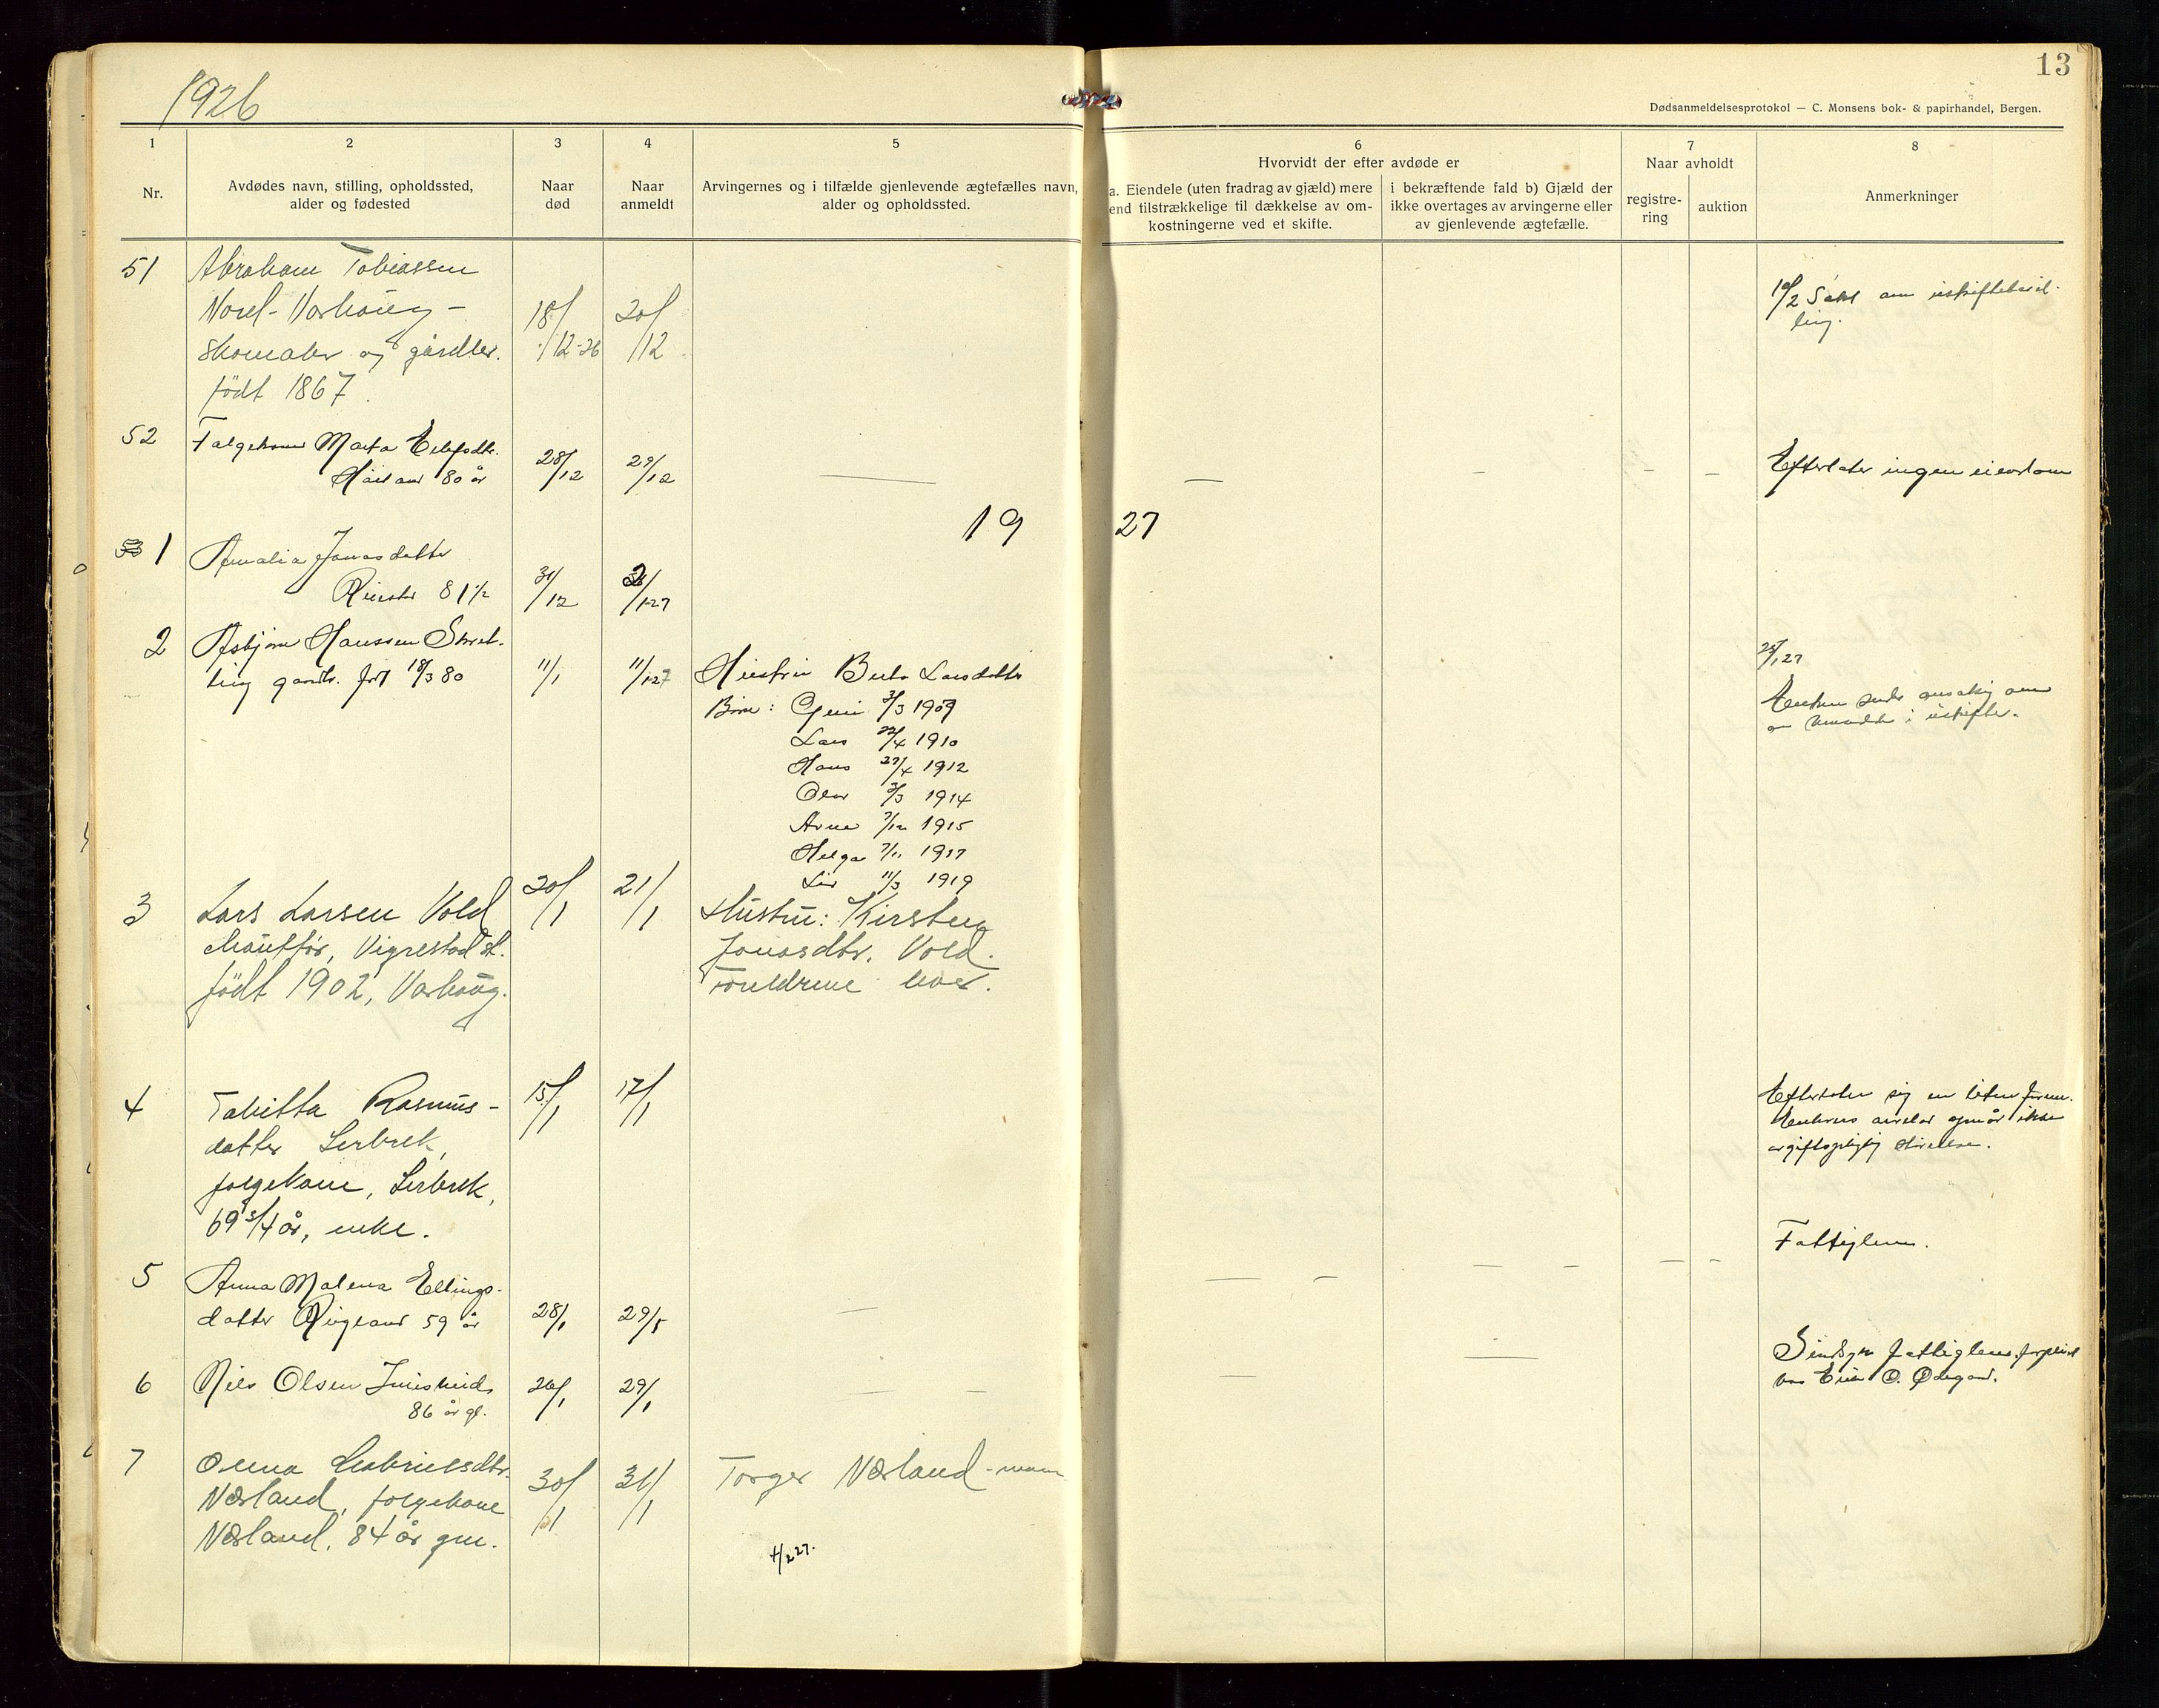 1926
13
Dødsanmeldelsesprotokol — C. Monsens bok- & papirhandel, Bergen.
1
2
3
4
5
6
7
8
Nr.
Avdødes navn, stilling, opholdssted,
alder og fødested
Naar
død
Naar
anmeldt
Arvingernes og i tilfælde gjenlevende ægtefælles navn,
alder og opholdssted.
Hvorvidt der efter avdøde er
a. Eiendele (uten fradrag av gjæld) mere
end tilstrækkelige til dækkelse av om-
kostningerne ved et skifte.
i bekræftende fald b) Gjæld der
ikke overtages av arvingerne eller
av gjenlevende ægtefælle.
Naar avholdt
registre-
ring
auktion
Anmerkninger
51
Abraham Tobiassen
Nord-Varhoug -
Skomaker og gårdbr.
födt 1867.
18/12-26
20/12
10/2 Søkt om uskiftebevil-
ling.
52
Folgekone Marta
80 år
28/12
29/12
Efterlater ingen eiendom
1927
1
Amalia Jonasdatter
81 1/2
31/12
2/1-27
2
Asbjørn Hanssen Skret-
ting gardbr. født 18/3 80
11/1
11/1 27
Hustru Berta Larsdatter
Børn: Gurine 3/3 1909
Lars 22/4 1910
Hans 27/4 1912
Olav 3/3 1914
Arne 7/12 1915
Helga 7/11 1917
Liv 11/3 1919
25/1 27
Enken ansøkning om
3
Lars Larsen Vold
chauffør, Vigrestad st.
födt 1902, Varhoug.
20/1
21/1
Hustru: Kirsten
Jonasdtr. Vold.
Foreldrene lever.
4
Tabitta Rasmus-
datter Lerbrek,
folgekone, Lerbrek,
69 3/4 år, enke.
15/1
17/1
Efterlater sig en liten formu.
5
Anna Malena Ellings-
datter Ringland 59 år
28/1
29/1
Fattiglem.
6
Nils Olsen
86 år gl.
26/1
29/1
Sindsyk fattiglem, forpleiet
hos O. Ødegard.
7
Olena Gabrielsdtr.
Nærland, folgekone
Nærland, 84 år gm.
30/1
31/1
Torger Nærland - mann
4/2 27.